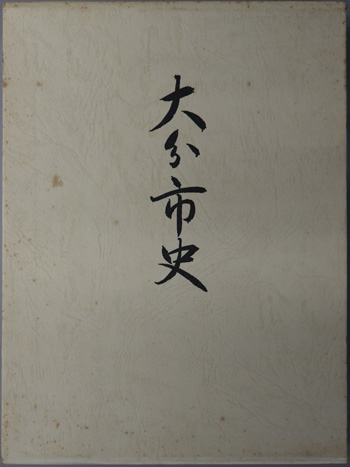 大分市史